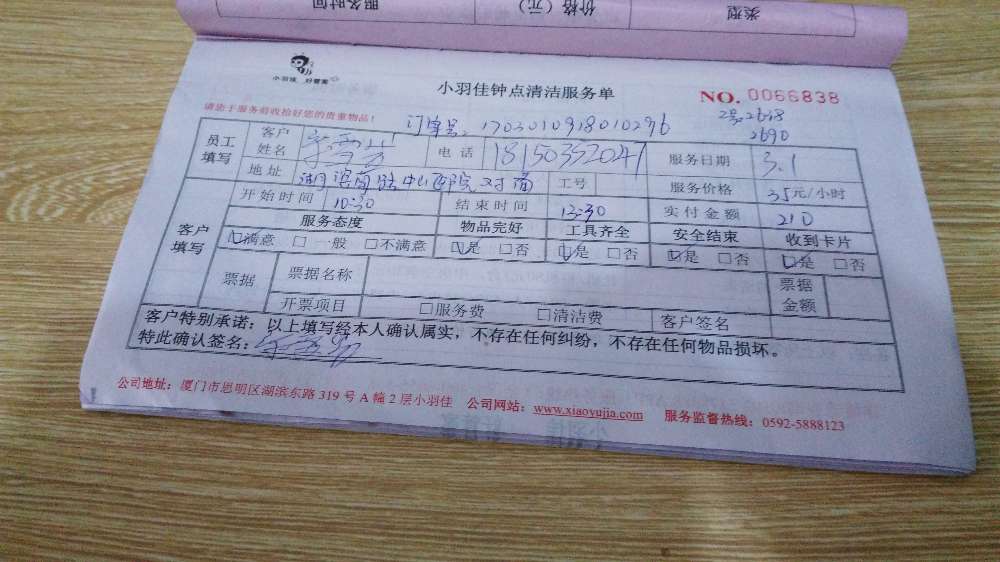 服务时间 价格（元） 类型
小羽佳 好管家
小羽佳钟点清洁服务单
NO. 0066838
请您于服务前收拾好您的贵重物品！
订单号：1703010918010296
2号2698
2690
员工填写 客户姓名 电话 18150352047 服务日期 3.1
地址 湖滨南路中山医院对面 工号 服务价格 35元/小时
客户填写 开始时间 10:30 结束时间 13:30 实付金额 210
服务态度 物品完好 工具齐全 安全结束 收到卡片
☑满意 □一般 □不满意 ☑是 □否 ☑是 □否 ☑是 □否 ☑是 □否
票据 票据名称 票据金额
开票项目 □服务费 □清洁费 客户签名
客户特别承诺：以上填写经本人确认属实，不存在任何纠纷，不存在任何物品损坏。
特此确认签名：
公司地址：厦门市思明区湖滨东路 319 号 A 幢 2 层小羽佳 公司网站：www.xiaoyujia.com 服务监督热线：0592-5888123